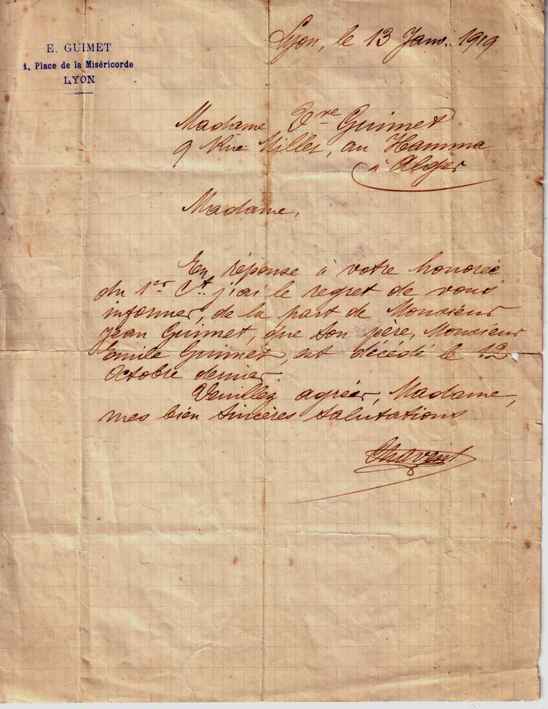 E. GUIMET
1, Place de la Miséricorde
LYON
Lyon, le 13 Janv. 1919
Madame Vve Guimet
9 Rue Millet, au Hamma
à Alger
Madame,
En réponse à votre honorée
du 1er Ct. j'ai le regret de vous
informer, de la part de Monsieur
Jean Guimet, que son père, Monsieur
Emile Guimet, est décédé le 12
Octobre dernier.
Veuillez agréer, Madame,
mes bien sincères salutations